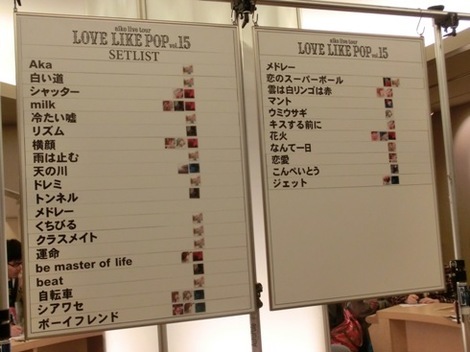 aiko live tour
LOVE LIKE POP vol.15
SETLIST
Aka
白い道
シャッター
milk
冷たい嘘
リズム
横顔
雨は止む
天の川
ドレミ
トンネル
メドレー
くちびる
クラスメイト
運命
be master of life
beat
自転車
シアワセ
ボーイフレンド
aiko live tour
LOVE LIKE POP vol.15
メドレー
恋のスーパーボール
雲は白リンゴは赤
マント
ウミウサギ
キスする前に
花火
なんて一日
恋愛
こんぺいとう
ジェット